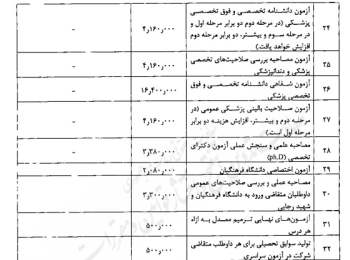 آزمون دانشنامه تخصصی و فوق تخصصی
پزشکی (در مرحله دوم دو برابر مرحله اول و
در مرحله سوم و بیشتر، دو برابر مرحله دوم
افزایش خواهد یافت.)
۲۴
۴٫۱۶۰٫۰۰۰
-
آزمون مصاحبه بررسی صلاحیت‌های تخصصی
پزشکی و دندانپزشکی
۲۵
۴٫۱۶۰٫۰۰۰
-
آزمون شفاهی دانشنامه تخصصی و فوق
تخصصی پزشکی
۲۶
۱۶٫۴۰۰٫۰۰۰
-
آزمون صلاحیت بالینی پزشکی عمومی (در
مرحله دوم و بیشتر، افزایش هزینه دو برابر
مرحله اول است.)
۲۷
۴٫۱۶۰٫۰۰۰
-
مصاحبه علمی و سنجش عملی آزمون دکترای
تخصصی (ph.D)
۲۸
۳٫۳۸۰٫۰۰۰
-
۲۹
آزمون اختصاصی دانشگاه فرهنگیان
۲٫۰۸۰٫۰۰۰
-
مصاحبه عملی و بررسی صلاحیت‌های عمومی
داوطلبان متقاضی ورود به دانشگاه فرهنگیان و
شهید رجایی
۳۰
۳٫۳۰۰٫۰۰۰
-
آزمون‌های نهایی ترمیم معدل به ازاء
هر درس
۳۱
۵۰۰٫۰۰۰
-
تولید سوابق تحصیلی برای هر داوطلب متقاضی
شرکت در آزمون سراسری
۳۲
۵۰۰٫۰۰۰
-